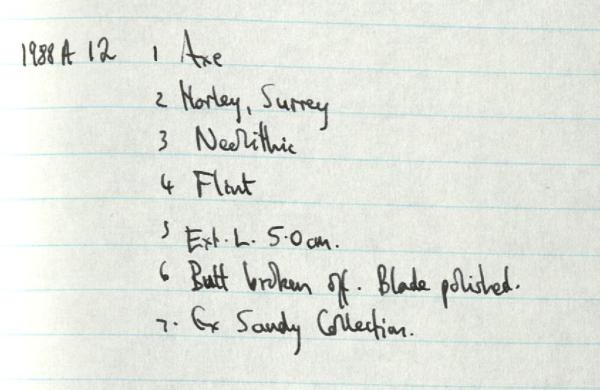 1988 A 12 1 Axe
2 Horley, Surrey
3 Neolithic
4 Flint
5 Ext. L. 5.0 cm.
6 Butt broken off. Blade polished.
7. Ex Sandy Collection.